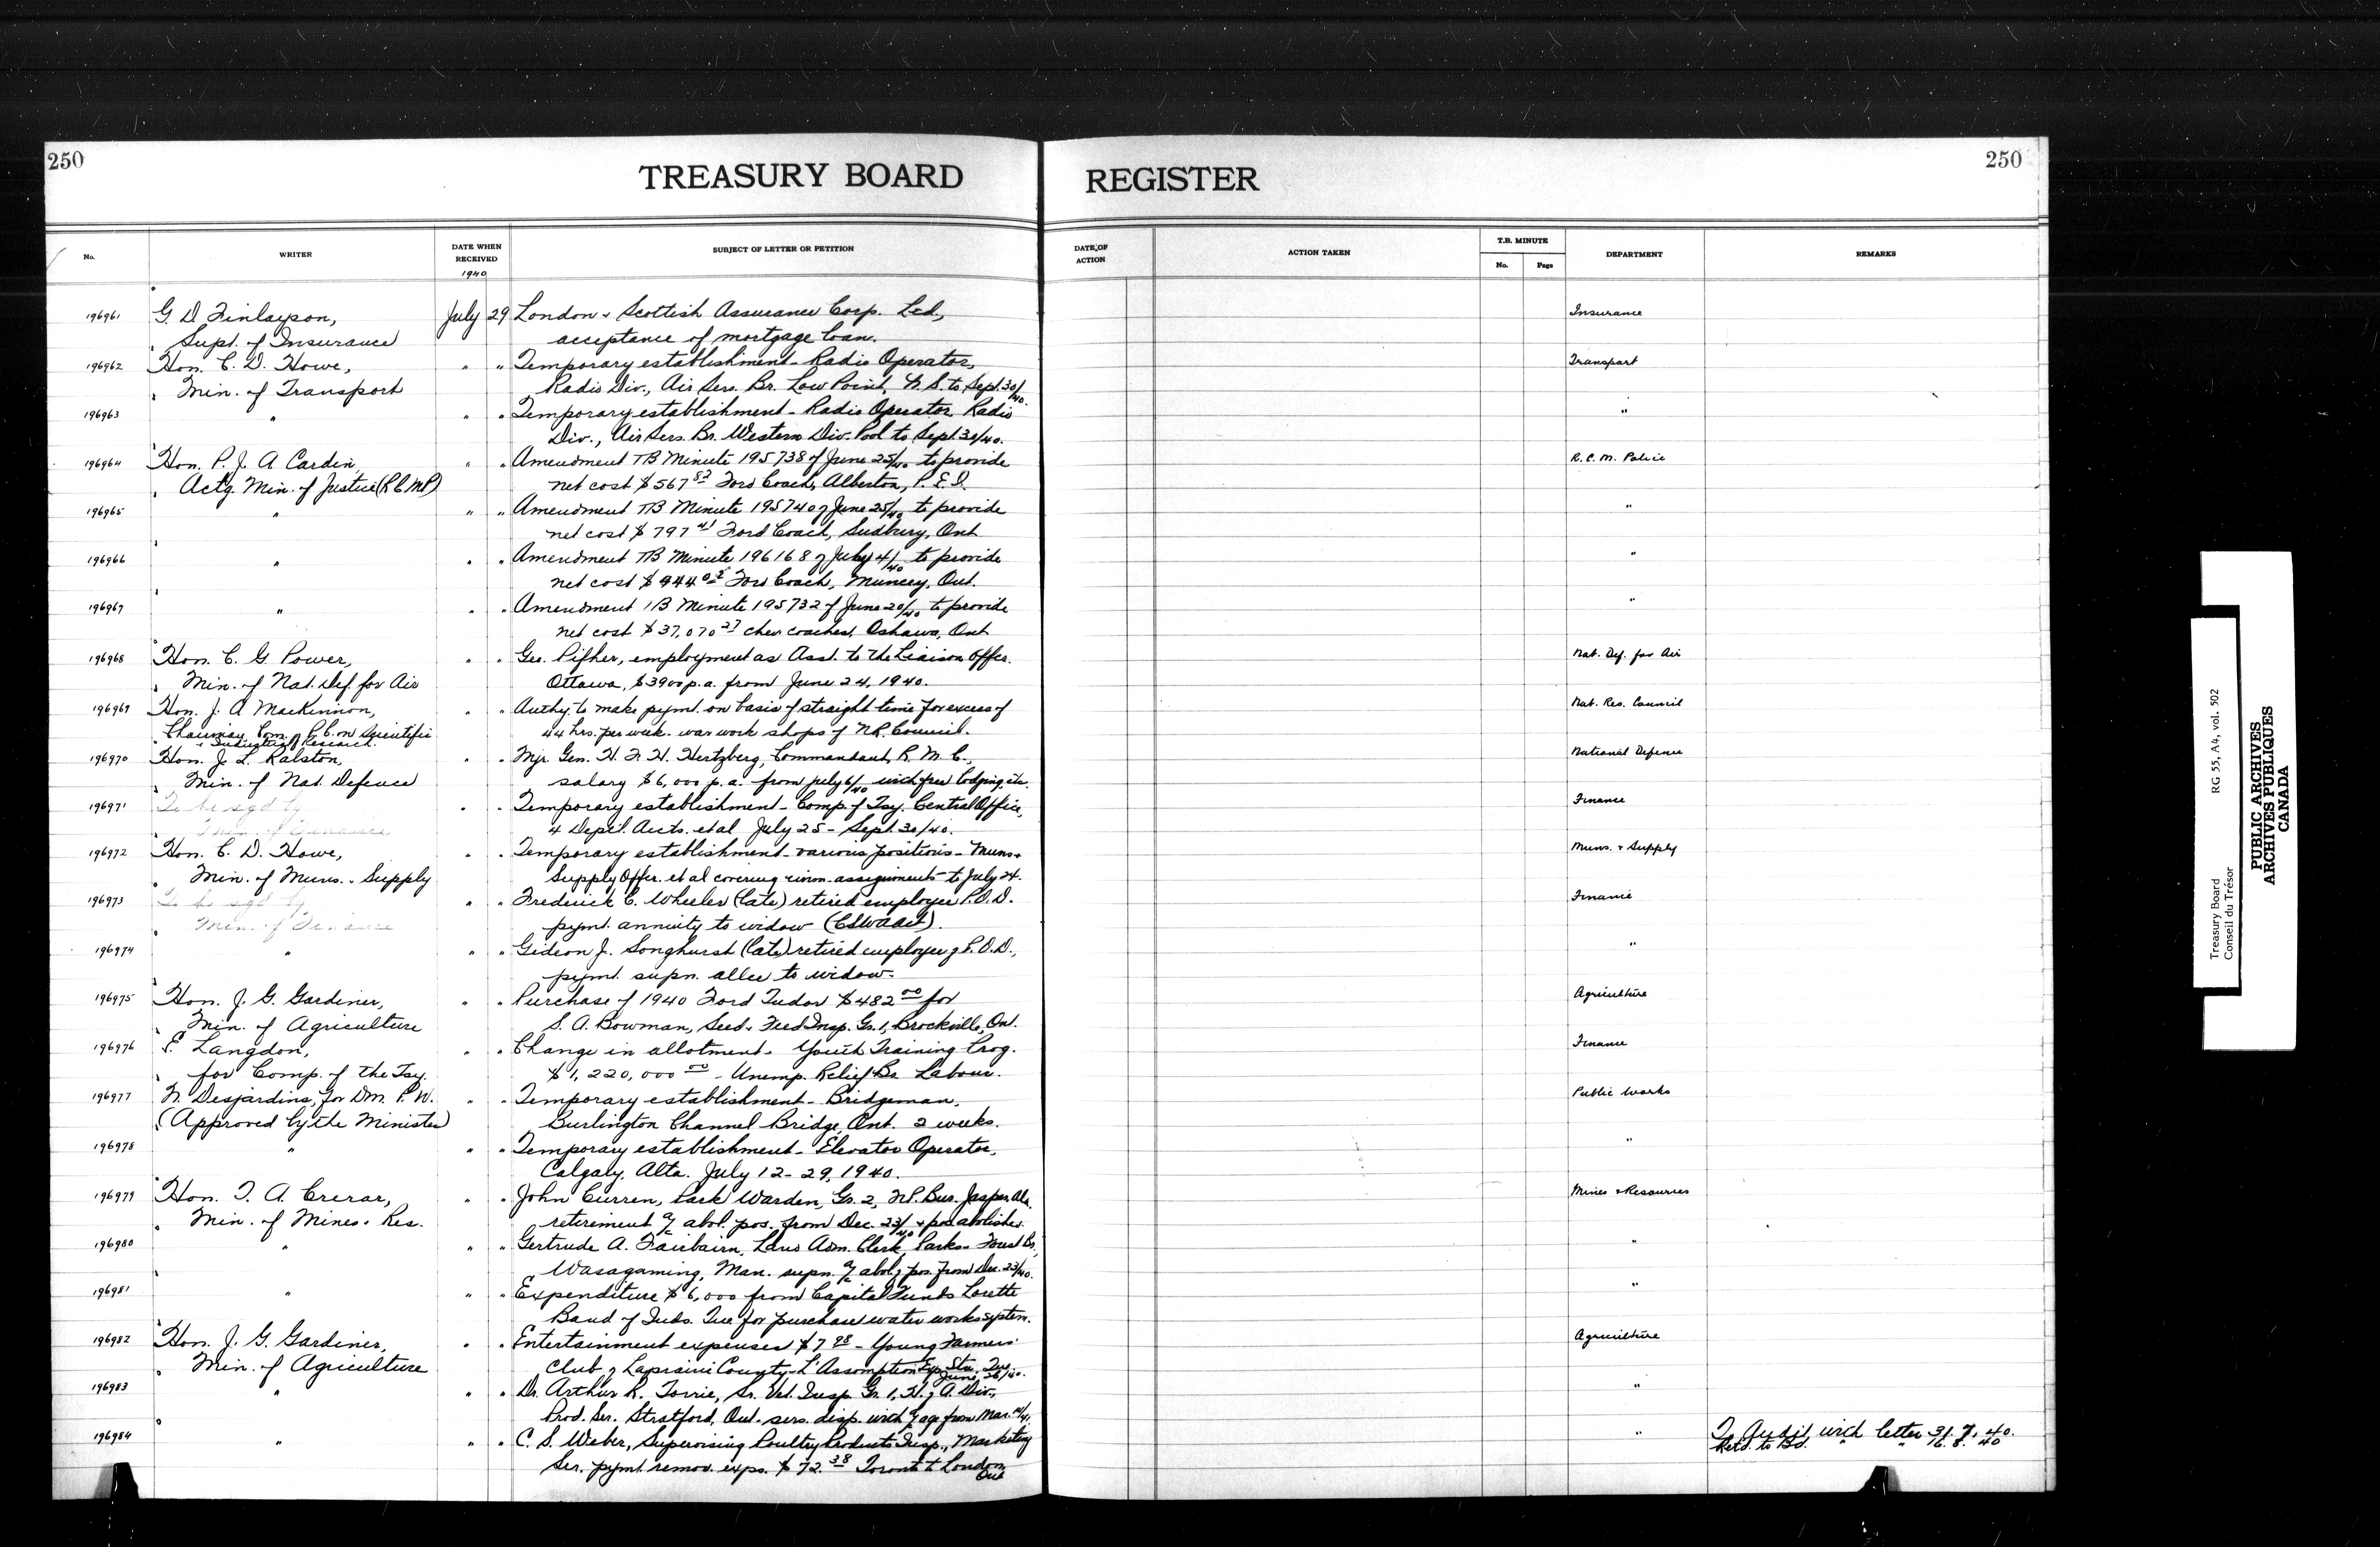 250
TREASURY BOARD
REGISTER
250
No.
WRITER
DATE WHEN RECEIVED
1940
SUBJECT OF LETTER OR PETITION
DATE OF ACTION
ACTION TAKEN
T.B. MINUTE
No.
Page
DEPARTMENT
REMARKS
196961 G. D Finlayson, July 29 London & Scottish Assurance Corp. Ltd, Insurance
Supt. of Insurance acceptance of mortgage loan.
196962 Hon. C. D. Howe, " " Temporary establishment - Radio Operator, Transport
Min. of Transport Radio Div., Air Serv. Br. Low Point, N. S. to Sept. 30/40.
196963 " " " Temporary establishment - Radio Operator Radio "
Div., Air Serv. Br. Western Div. Pool to Sept. 30/40.
196964 Hon. P. J. A Cardin, " " Amendment TB Minute 195738 of June 25/40 to provide R. C. M. Police
Actg. Min. of Justice (RCMP) net cost $567 82 Ford Coach, Alberton, P. E. I.
196965 " " " Amendment TB Minute 195740 of June 25/40 to provide "
net cost $797 41 Ford Coach, Sudbury, Ont
196966 " " " Amendment TB Minute 196168 of July 4/40 to provide "
net cost $944 02 Ford Coach, Muncey, Ont.
196967 " " " Amendment TB Minute 195732 of June 20/40 to provide "
net cost $37,070 27 Chev coaches, Oshawa, Ont
196968 Hon. C. G. Power, " " Geo. Pifher, employment as Asst. to the Liaison Offcr. Nat. Def. for Air
Min. of Nat. Def. for Air Ottawa, $3900 p.a. from June 24, 1940.
196969 Hon. J. A MacKinnon, " " Authy. to make pymt. on basis of straight time for excess of Nat. Res. Council
Chairman Com. of P.C. on Scientific 44 hrs. per week - war work shops of N.R. Council.
& Industrial Research.
196970 Hon. J. L. Ralston, " " Mjr. Gen. H. F. H. Hertzberg, Commandant, R. M. C., National Defence
Min. of Nat. Defence salary $6,000 p.a. from July 6/40 with free lodging, etc.
196971 To be sgd by " " Temporary establishment - Comp. of Tsy. Central Office, Finance
Min. of Finance 4 Deptl. Accts. et al July 25 - Sept. 30/40.
196972 Hon. C. D. Howe, " " Temporary establishment - various positions - Muns & Muns. & Supply
Min. of Muns. & Supply Supply Offcr. et al covering assignments to July 24.
196973 To be sgd by " " Frederick C. Wheeler (late) retired employee P.O.D. Finance
Min. of Finance pymt. annuity to widow
196974 " " " Gideon J. Songhurst (late) retired employee of P.O.D., "
pymt. supn. allce to widow.
196975 Hon. J. G. Gardiner, " " Purchase of 1940 Ford Tudor $482 00 for Agriculture
Min. of Agriculture S. A. Bowman, Seed & Feed Insp. Gr. 1, Brockville, Ont.
196976 Langdon, " " Change in allotment - Youth Training Prog. Finance
for Comp. of the Tsy. $1,220,000 00 - Unemp. Relief Br. Labour.
196977 N. Desjardins, for D.M. P.W. " " Temporary establishment - Bridgeman, Public Works
(Approved by the Minister) Burlington Channel Bridge, Ont. 2 weeks.
196978 " " " Temporary establishment - Elevator Operator, "
Calgary, Alta. July 12-29, 1940.
196979 Hon. T. A. Crerar, " " John Curren, Park Warden, Gr. 2, N.P. Bur. Jasper, Alta. Mines & Resources
Min. of Mines & Res. retirement a/c abol. pos. from Dec. 23/40 & pos abolished.
196980 " " " Gertrude A. Fairbairn, Land Adm. Clerk, Parks & Forest Br., "
Wasagaming, Man. supn. a/c abol. of pos. from Dec. 23/40.
196981 " " " Expenditure $6,000 from Capital Funds Lorette "
Band of Inds. Que for purchase water works system.
196982 Hon. J. G. Gardiner, " " Entertainment expenses $7 98 - Young Farmers' Agriculture
Min. of Agriculture Club of Laprairie County - L'Assomption Exp. Stn. Que June, 26/40.
196983 " " " Dr. Arthur R. Torrie, Sr. Vet. Insp. Gr. 1, H. of A. Div., "
Prod. Ser. Stratford, Ont. - serv. disp. with a/c age from Mar.
196984 " " " C. S. Weber, Supervising Poultry Products Insp., Marketing " To Audit with letter 31. 7. 40.
Ser. pymt. remov. exps. $72.38 Toronto to London, Ont Retd. to Bd. " " 16. 8. 40
Treasury Board RG 55, A4, vol. 502
Conseil du Trésor
PUBLIC ARCHIVES
ARCHIVES PUBLIQUES
CANADA